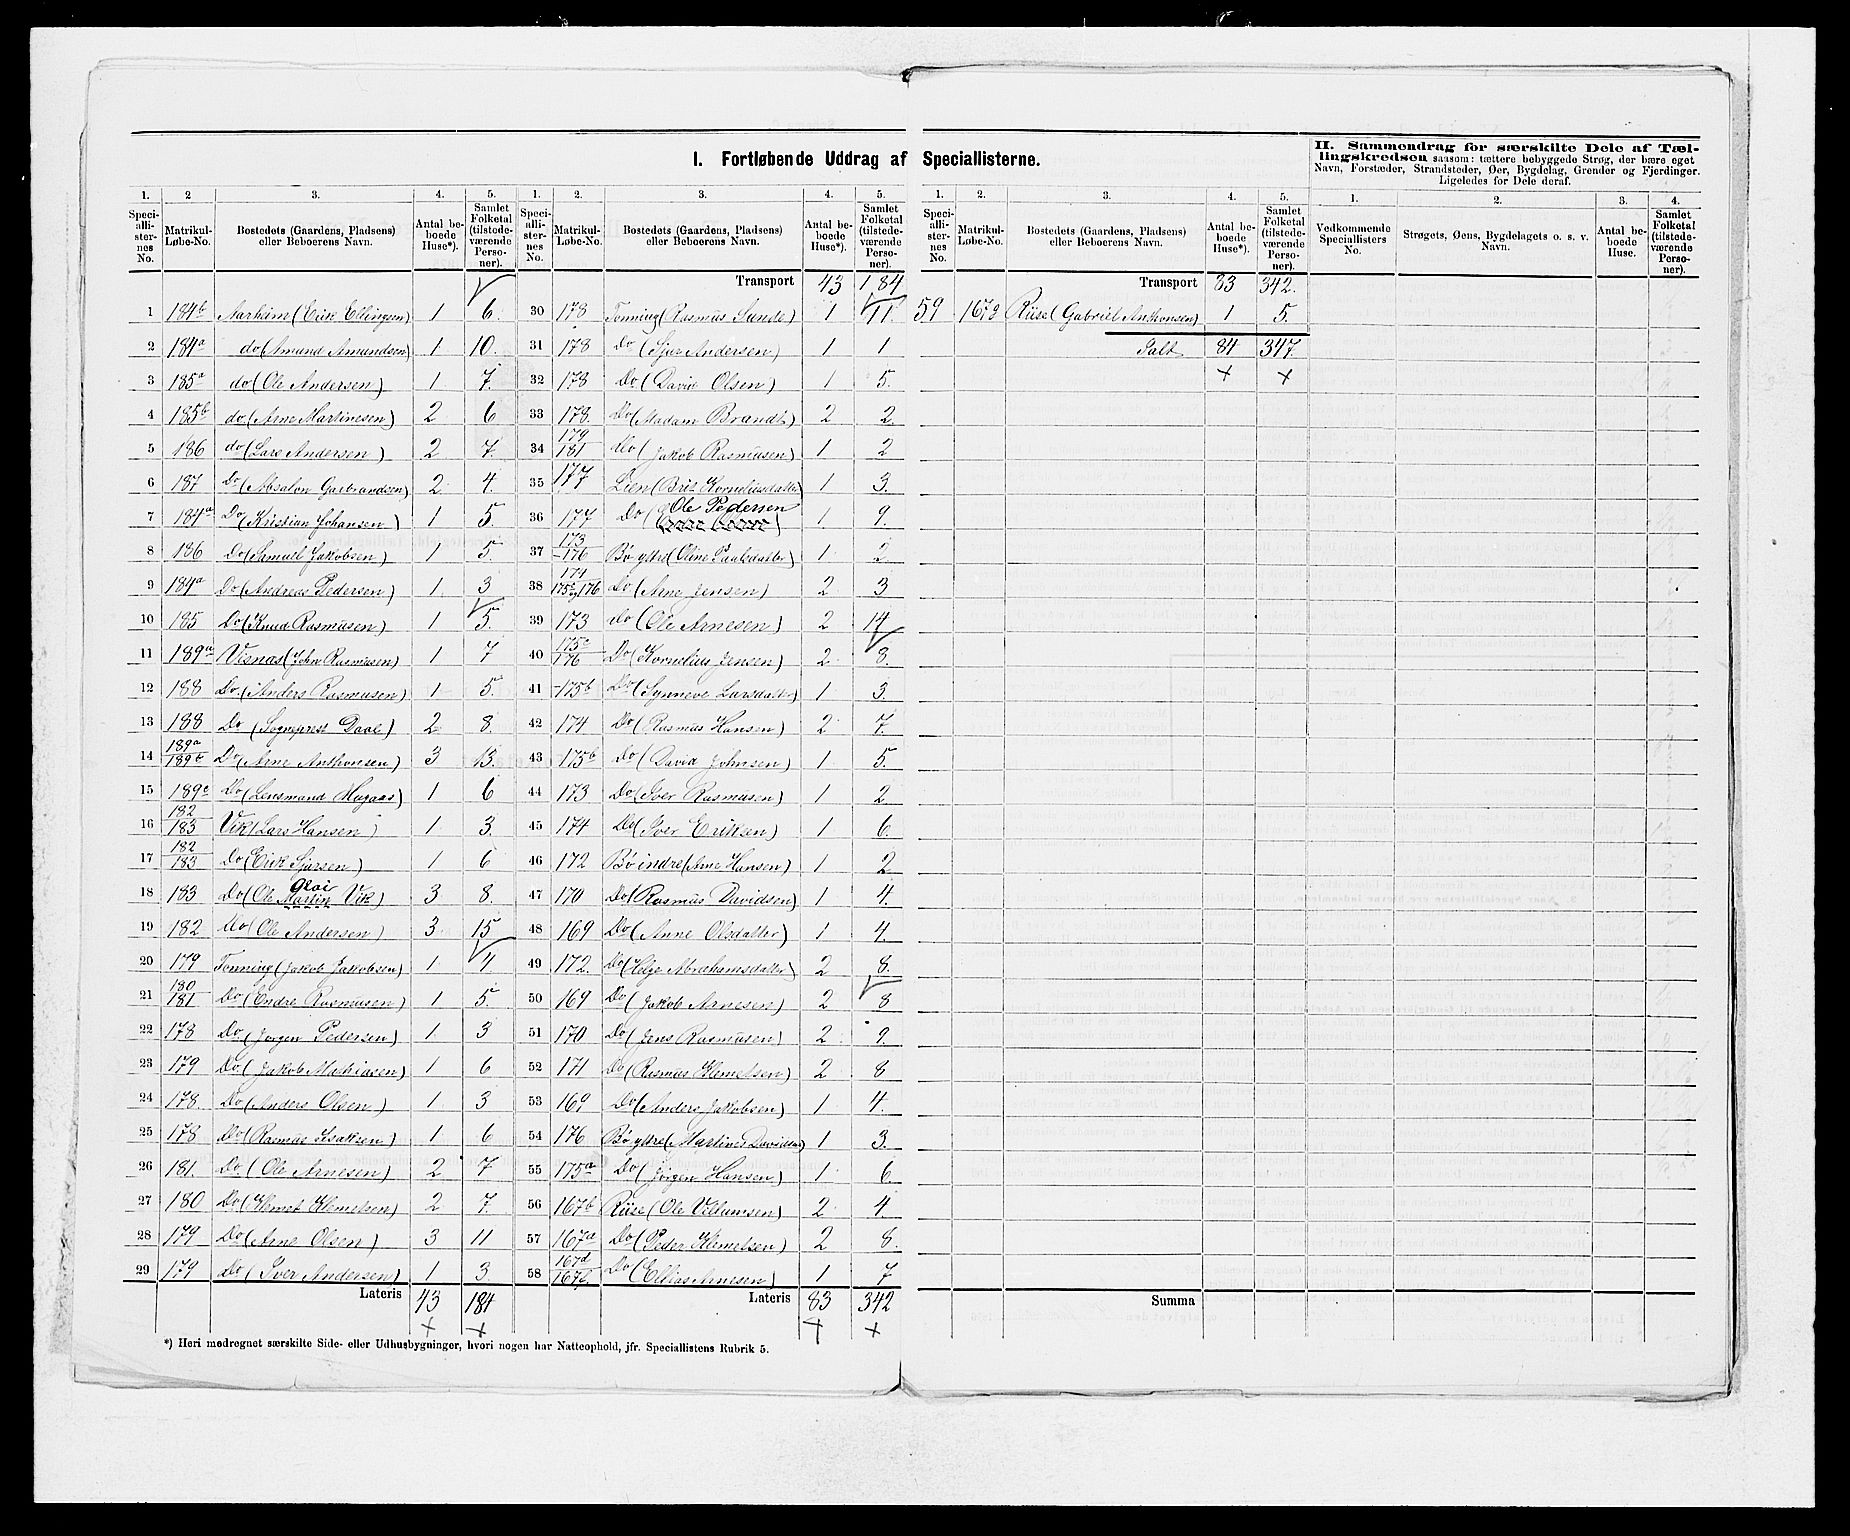 I. Fortløbende Uddrag af Speciallisterne.
II. Sammendrag for særskilte Dele af Tællingskredsen saasom: tættere bebyggede Strøg, der bære eget
Navn, Forstæder, Strandsteder, Øer, Bygdelag, Grender og Fjerdinger.
Ligeledes for Dele deraf.
1. 2 3. 4. 5.
Speciallisternes No. Matrikul-Løbe-No. Bostedets (Gaardens, Pladsens) eller Beboerens Navn. Antal beboede Huse*). Samlet Folketal (tilstedeværende Personer).
1 184b Aarheim (Erik Ellingsen) 1 6.
2 184a do (Amund Amundsen) 1 10.
3 185a do (Ole Andersen) 1 7.
4 185b do (Arne Martinesen) 2 6
5 186 do (Lars Andersen) 2 7.
6 187 Do (Absalon Garbrandsen) 2 4.
7 184a Do (Kristian Johansen) 1 5.
8 186 Do (Samuel Jakobsen) 1 5.
9 184a Do (Andreas Pedersen) 1 3
10 185 Do (Knud Rasmusen) 1 5.
11 189a Visnæs (John Rasmusen) 1 7
12 188 Do (Anders Rasmusen) 1 5.
13 188 Do (Sogneprest Daae) 2 8.
14 189a/189b Do (Arne Anthonsen) 3 13.
15 189c Do (Lensmand Hugaas) 1 6
16 182/183 Vik (Lars Hansen) 1 3.
17 182/183 Do (Erik Sjursen) 1 6
18 183 Do (Ole Martin Vik) 3 8.
19 182 Do (Ole Andersen) 3 15
20 179 Tonning (Jakob Jakobsen) 1 4.
21 180/181 Do (Endre Rasmusen) 1 5.
22 178 Do (Jørgen Pedersen) 1 3
23 179 Do (Jakob Mathiasen) 1 6
24 178. Do (Anders Olsen) 1 3
25 178 Do (Rasmus Isaksen) 1 6
26 181. Do (Ole Arnesen) 2 7
27 180 Do (Klemet Klemetsen) 2 7.
28 179 Do (Arne Olsen) 3 11
29 179 Do (Iver Andersen) 1 3.
Lateris 43 184
1. 2. 3. 4. 5.
Speciallisternes No. Matrikul-Løbe-No. Bostedets (Gaardens, Pladsens) eller Beboerens Navn. Antal beboede Huse*). Samlet Folketal (tilstedeværende Personer).
Transport 43 184
30 178 Tonning (Rasmus Sunde) 1 11.
31 178 Do (Sjur Andersen) 1 1
32 178 Do (David Olsen) 1 5.
33 178. Do (Madam Brandt) 2 2.
34 179/181 Do (Jakob Rasmusen) 1 2
35 177 Lien (Brit Korneliusdatter) 1 3.
36 177 Do (Ole Pedersen) 1 9.
37 173/176 Bø ytre (Oline Paalsdatter) 1 2
38 174 175c og 176 Do (Arne Jensen) 2 3
39 173 do (Ole Arnesen) 2 14
40 175c/176 Do (Kornelius Jensen) 2 8.
41 175b Do (Synneve Larsdatter) 1 3.
42 174 Do (Rasmus Hansen) 2 7.
43 175b Do (David Johnsen) 1 5.
44 173 Do (Iver Rasmusen) 1 2
45 174 Do (Iver Eriksen) 1 6.
46 172 Bø indre (Arne Hansen) 1 2
47 170 Do (Rasmus Davidsen) 1 4.
48 169 Do (Anne Olsdatter) 1 4.
49 172. Do (Helge Abrahamsdatter) 2 8.
50 169 Do (Jakob Arnesen) 2 8
51 170 Do (Jens Rasmusen) 2 9.
52 171 Do (Rasmus Klemetsen) 2 8
53 169 Do (Anders Jakobsen) 1 4.
54 176 Bø ytre (Martines Davidsen) 1 3.
55 175a Do (Jørgen Hansen) 1 6
56 167b Riise (Ole Villumsen) 2 4
57 167a Do (Peder Klemetsen) 2 8.
58 167d Do (Ellias Arnesen) 1 7
Lateris 83 342
1. 2. 3. 4. 5.
Speciallisternes No. Matrikul-Løbe-No. Bostedets (Gaardens, Pladsens) eller Beboerens Navn. Antal beboede Huse*). Samlet Folketal (tilstedeværende Personer).
Transport 83 342.
59 Riise (Gabriel Anthonsen) 1 5.
Ialt 84 347.
Summa
1. 2. 3. 4.
Vedkommende Speciallisters No. Strøgets, Øens, Bygdelagets o. s. v. Navn. Antal beboede Huse. Samlet Folketal (tilstedeværende Personer).
*) Heri medregnet særskilte Side- eller Udhusbygninger, hvori nogen har Natteophold, jfr. Speciallistens Rubrik 5.